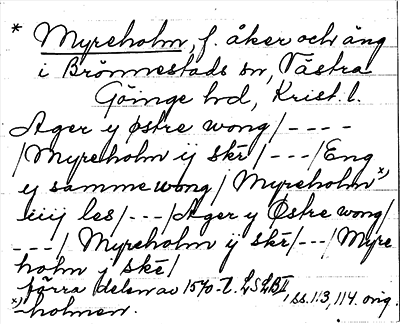 * Myreholm, f. åker och äng
i Brönnestads sn, Västra
Göinge hd, Krist. l.
Ager y østre wong/----
/Myreholm ij skr/---/Eng
y samme wong/ Myreholm x)
iiij les/---/Ager y Østre wong/
---/ Myreholm ij skr/---/Myre
holm j skr/
förra delen av 1570-t. LSLB II, ss. 113, 114. orig.
x) holmen.